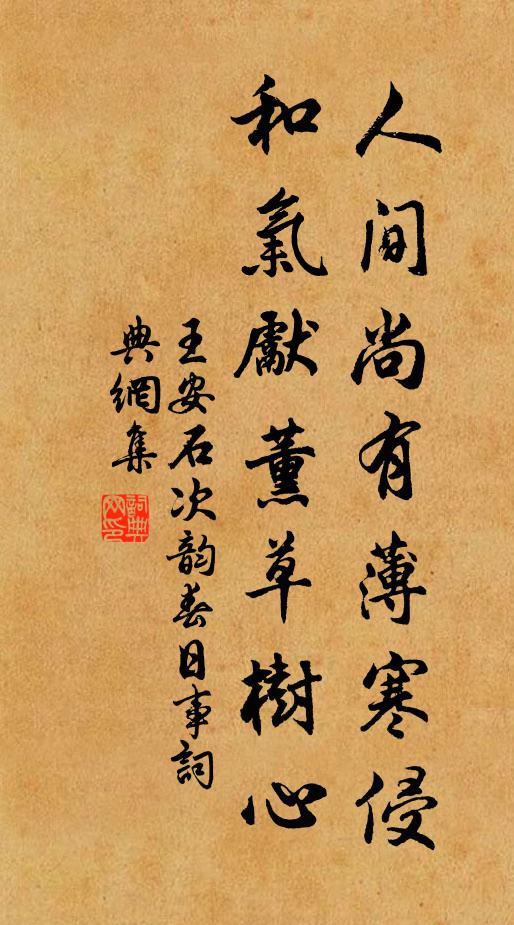 人間尚有薄寒侵
和氣獻薰草樹心
王安石次韵春日事詞
典網集
詞典网印